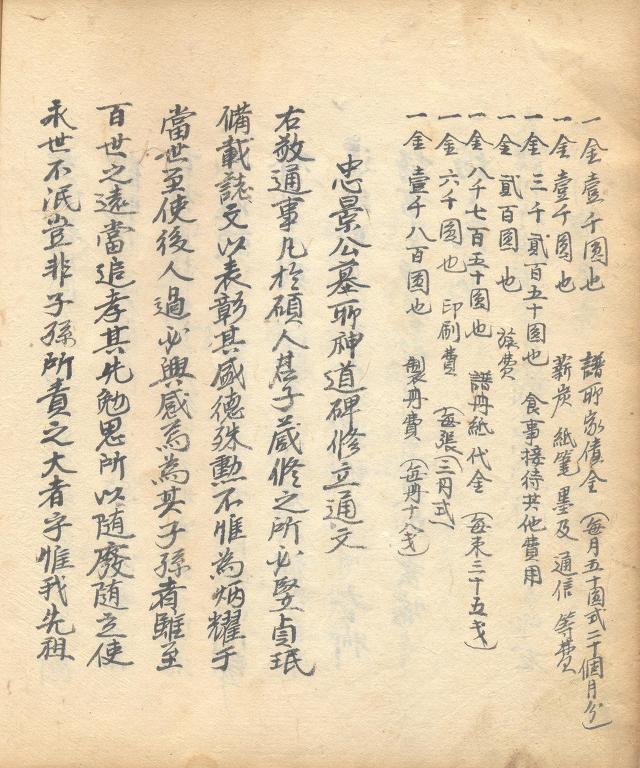 一金壹千圓也 譜所家債金（每月五十圓式二十個月分）
一金壹千圓也 薪炭紙筆墨及通信等費
一金三千貳百五十圓也 食事接待其他費用
一金貳百圓也 旅費
一金八千七百五十圓也 譜冊紙代金（每束三十五戔）
一金六千圓也 印刷費（每張三円式）
一金壹千八百圓也 製冊費（每冊十八戔）
忠景公墓所神道碑修立通文
右敬通事凡於碩人君子葳修之所必竪貞珉
備載誌文以表彰其盛德殊勳不惟為炳耀于
當世至使後人過必興感焉為其子孫者雖至
百世之遠當追孝其先勉思所以随廢随立使
永世不泯豈非子孫所責之大者乎惟我先祖